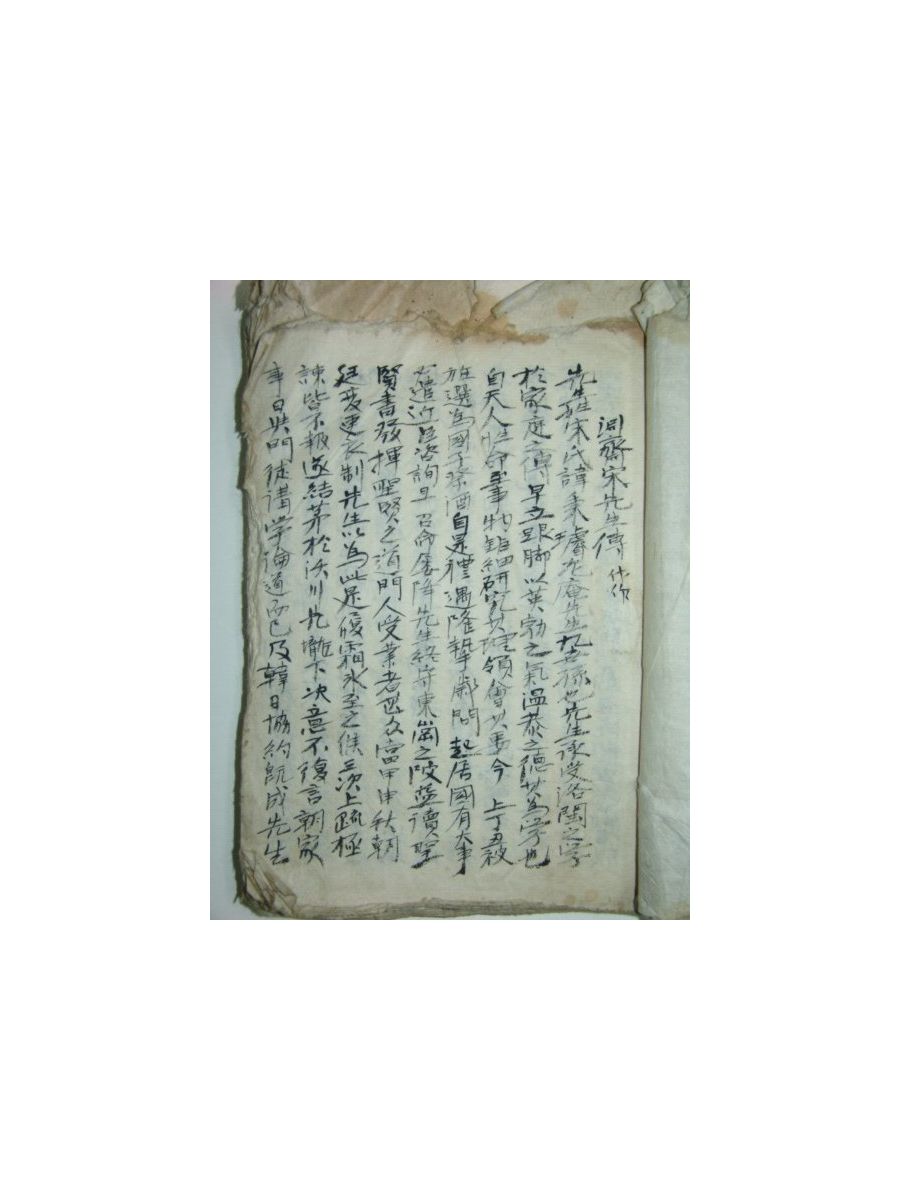 淵齋宋先生傳 代作
先生姓宋氏諱秉璿尤庵先生九世孫也先生承受洛閩之學
於家庭之傳早立跟脚以英勃之氣溫恭之德其爲學也
自天人性命至事物鉅細研究其理領會其禹今 上丁丑被
旌選爲國子祭酒自是禮遇隆摯辭問 起居國有大事
必遣近臣咨詢旱 召命屢降先生終守東崗之陂益讀聖
賢書發揮聖賢之道門人受業者甚衆當甲申秋朝
廷変更衣制先生以爲此是履霜氷至之候三次上疏極
諫皆不報遂結茅於沃川先壠下决意不復言朝家
事日與門徒講學論道而已及韓日協約旣成先生